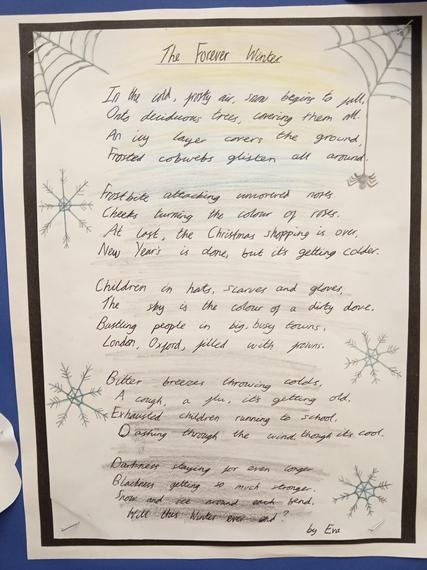 The Forever Winter
In the cold, frosty air, snow begins to fall,
Onto deciduous trees, covering them all.
An icy layer covers the ground,
Frosted cobwebs glisten all around.
Frostbite attacking uncovered noses.
Cheeks turning the colour of roses.
At last, the Christmas shopping is over,
New Year's is done, but it's getting colder.
Children in hats, scarves and gloves,
The sky is the colour of a dirty dove.
Bustling people in big, busy towns,
London, Oxford, filled with frowns.
Bitter breezes throwing colds,
A cough, a flu, it's getting old.
Exhausted children running to school,
Dashing through the wind, though it's cool.
Darkness staying for even longer
Blackness getting so much stronger.
Snow and ice around each bend.
Will this Winter ever end?
by Eva